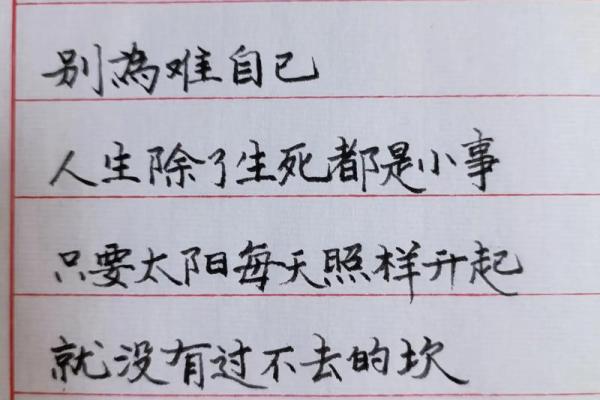 别為难自己
人生除了生死都是小事
只要太阳每天照样升起
就没有过不去的坎